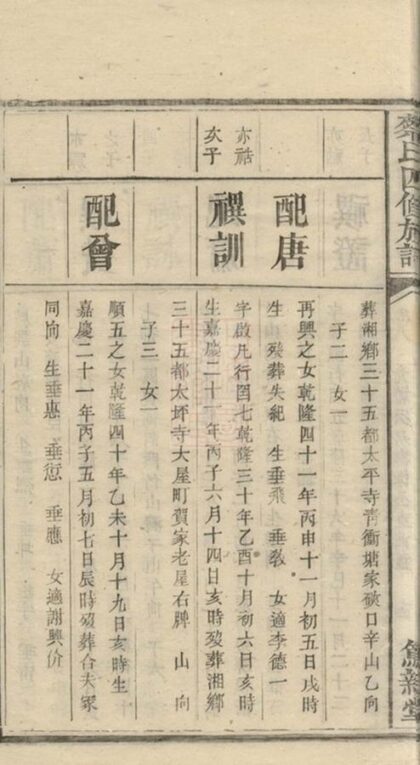 氏四修族譜
親堂
葬湘鄉三十五都太平寺青衝塘家磺口辛山乙向
子二 女一
配唐
再興之女乾隆四十一年丙申十一月初五日戌時
生 歿葬失紀 生垂飛 垂敎 女適李德一
亦祰
次子
禩訓
字啟凡行囝七乾隆三十年乙酉十月初六日亥時
生嘉慶二十一年丙子六月十四日亥時歿葬湘鄉
三十五都太坪寺大屋町賀家老屋右牌 山 向
子三 女一
配曾
順五之女乾隆四十年乙未十月十九日亥時生
嘉慶二十一年丙子五月初七日辰時歿葬合夫冢
同向 生垂惠 垂愆 垂應 女適謝興价